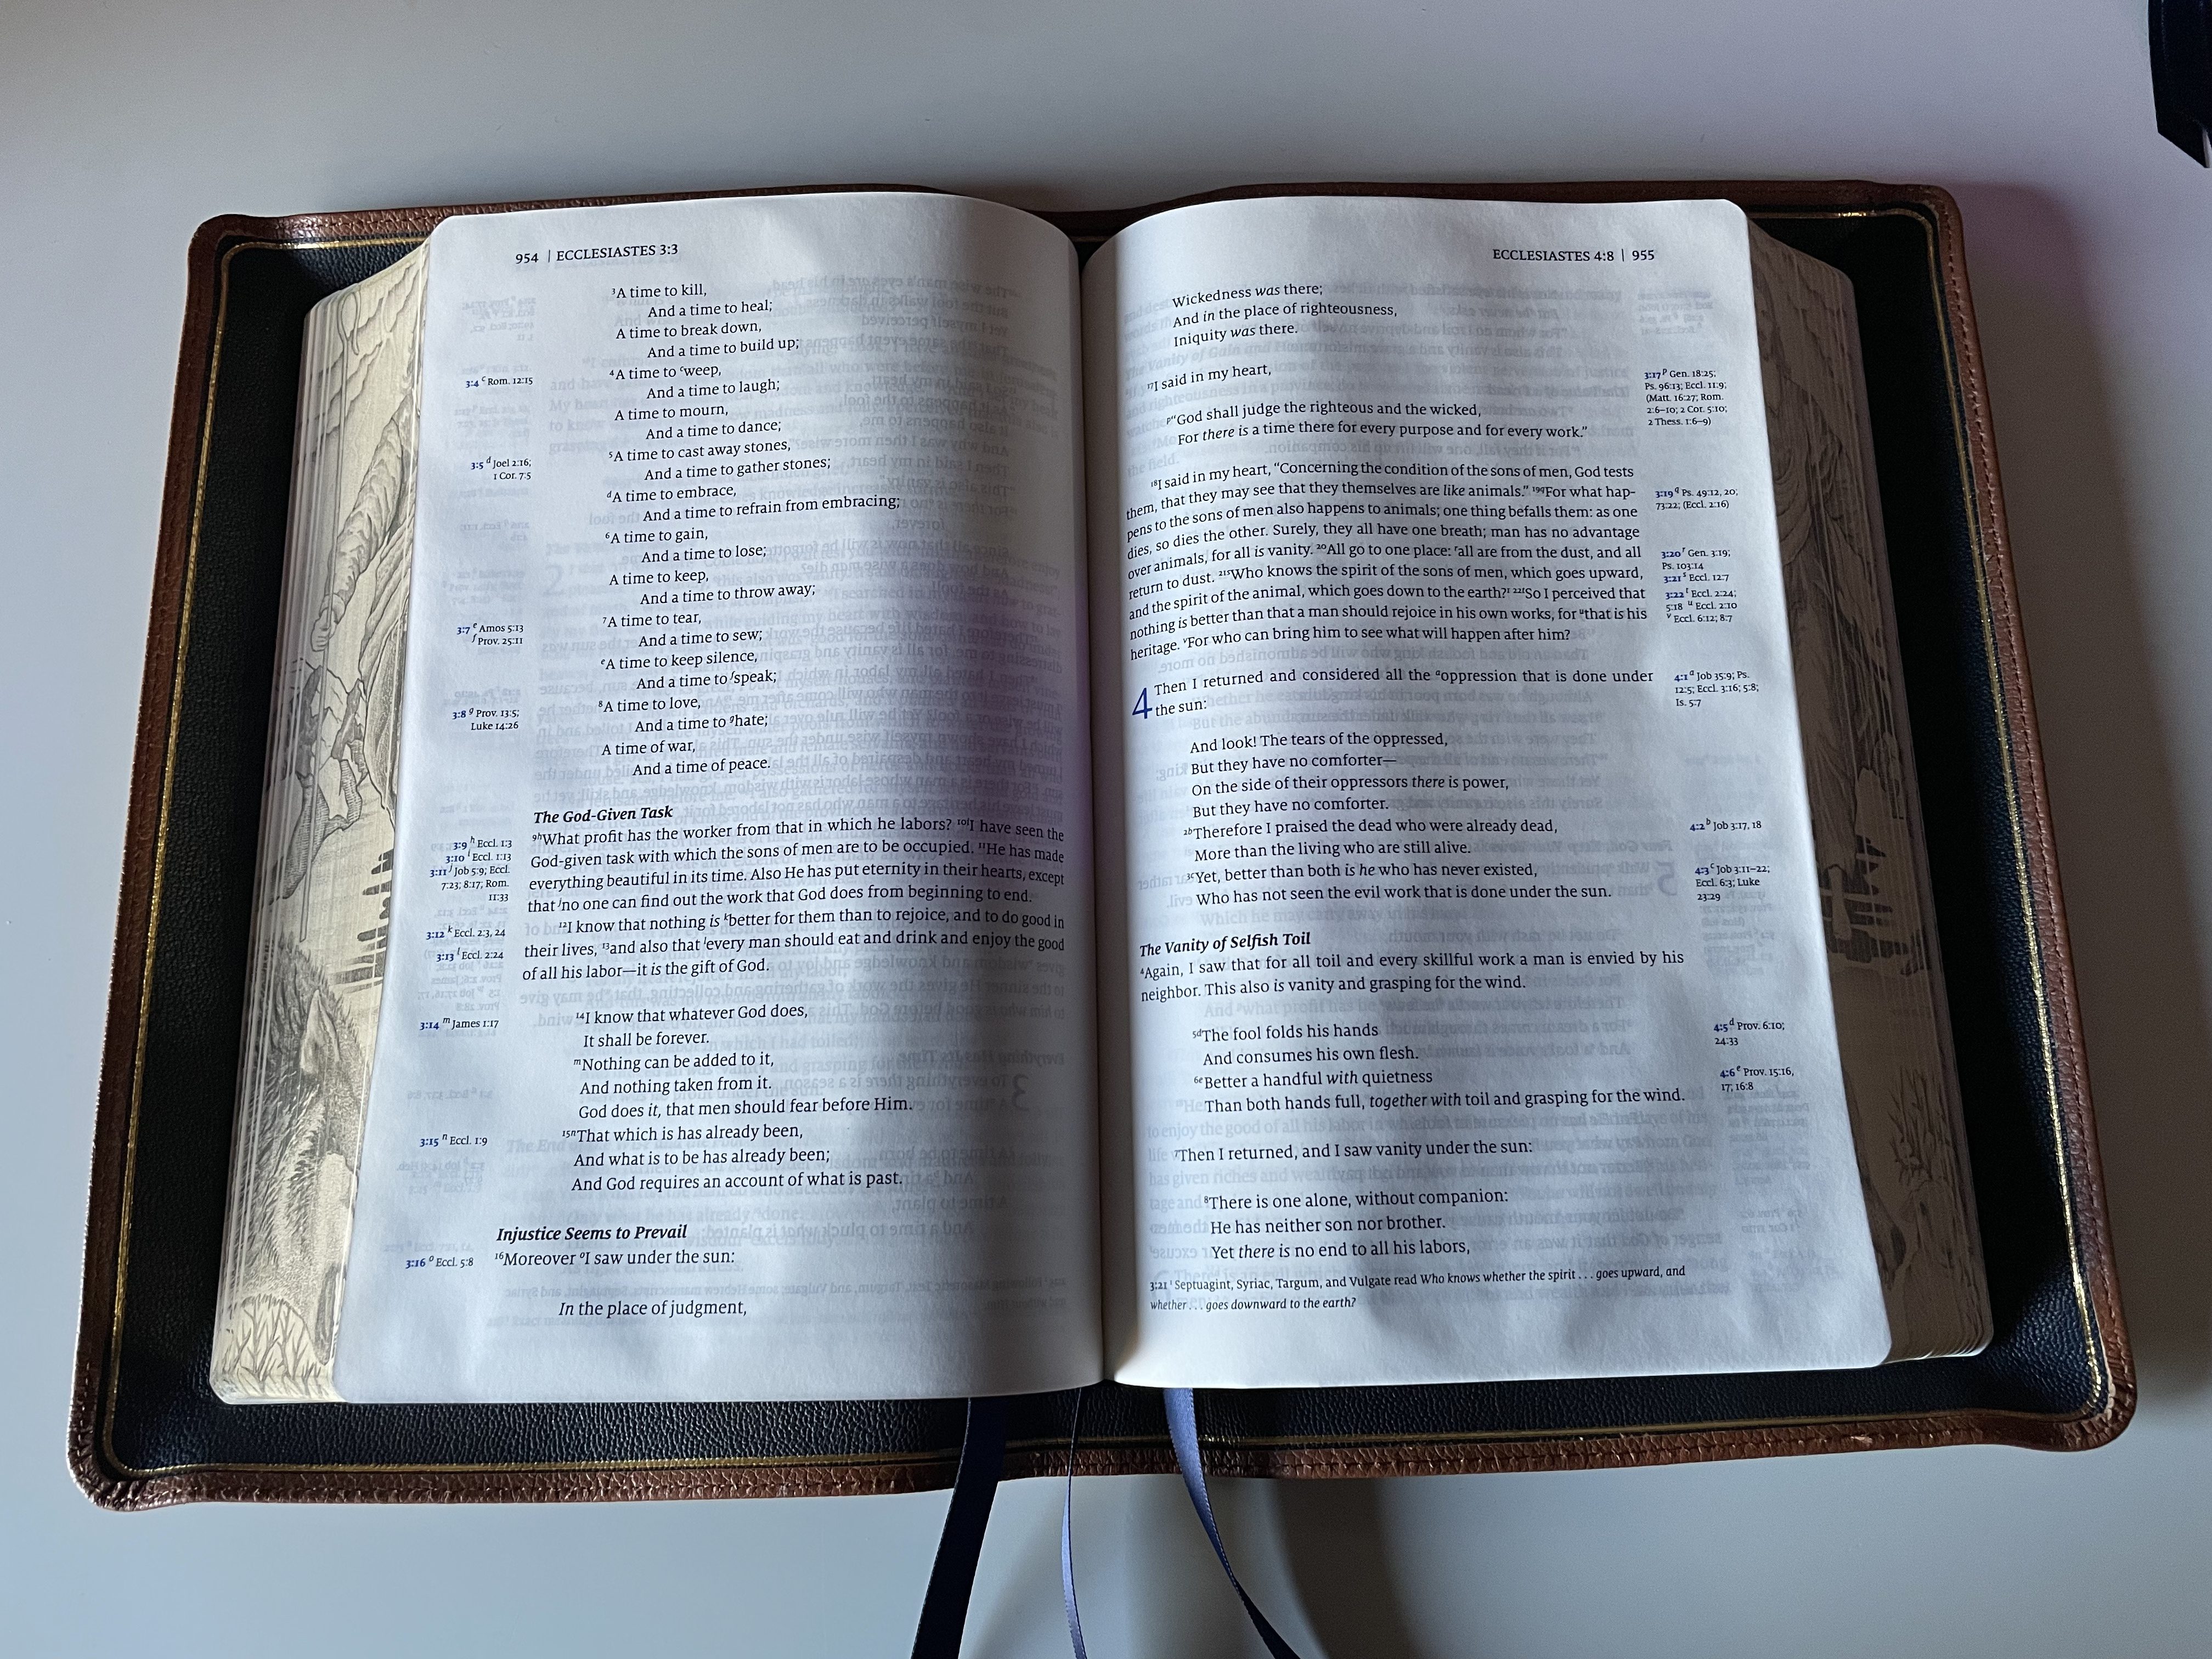 954 | ECCLESIASTES 3:3
³A time to kill,
And a time to heal;
A time to break down,
And a time to build up;
⁴A time to ᶜweep,
And a time to laugh;
A time to mourn,
And a time to dance;
⁵A time to cast away stones,
And a time to gather stones;
ᵈA time to embrace,
And a time to refrain from embracing;
⁶A time to gain,
And a time to lose;
A time to keep,
And a time to throw away;
⁷A time to tear,
And a time to sew;
ᵉA time to keep silence,
And a time to ᶠspeak;
⁸A time to love,
And a time to ᵍhate;
A time of war,
And a time of peace.
The God-Given Task
⁹ʰWhat profit has the worker from that in which he labors? ¹⁰ⁱI have seen the
God-given task with which the sons of men are to be occupied. ¹¹He has made
everything beautiful in its time. Also He has put eternity in their hearts, except
that ʲno one can find out the work that God does from beginning to end.
¹²I know that nothing is ᵏbetter for them than to rejoice, and to do good in
their lives, ¹³and also that ˡevery man should eat and drink and enjoy the good
of all his labor—it is the gift of God.
¹⁴I know that whatever God does,
It shall be forever.
ᵐNothing can be added to it,
And nothing taken from it.
God does it, that men should fear before Him.
¹⁵ⁿThat which is has already been,
And what is to be has already been;
And God requires an account of what is past.
Injustice Seems to Prevail
¹⁶Moreover ᵒI saw under the sun:
In the place of judgment,
3:4 ᶜ Rom. 12:15
3:5 ᵈ Joel 2:16;
1 Cor. 7:5
3:7 ᵉ Amos 5:13
ᶠ Prov. 25:11
3:8 ᵍ Prov. 13:5;
Luke 14:26
3:9 ʰ Eccl. 1:3
3:10 ⁱ Eccl. 1:13
3:11 ʲ Job 5:9; Eccl.
7:23; 8:17; Rom.
11:33
3:12 ᵏ Eccl. 2:3, 24
3:13 ˡ Eccl. 2:24
3:14 ᵐ James 1:17
3:15 ⁿ Eccl. 1:9
3:16 ᵒ Eccl. 5:8
ECCLESIASTES 4:8 | 955
Wickedness was there;
And in the place of righteousness,
Iniquity was there.
¹⁷I said in my heart,
ᵖ“God shall judge the righteous and the wicked,
For there is a time there for every purpose and for every work.”
¹⁸I said in my heart, “Concerning the condition of the sons of men, God tests
them, that they may see that they themselves are like animals.” ¹⁹qFor what hap-
pens to the sons of men also happens to animals; one thing befalls them: as one
dies, so dies the other. Surely, they all have one breath; man has no advantage
over animals, for all is vanity. ²⁰All go to one place: ʳall are from the dust, and all
return to dust. ²¹ˢWho knows the spirit of the sons of men, which goes upward,
and the spirit of the animal, which goes down to the earth?¹ ²²ᵗSo I perceived that
nothing is better than that a man should rejoice in his own works, for ᵘthat is his
heritage. ᵛFor who can bring him to see what will happen after him?
4 Then I returned and considered all the ᵃoppression that is done under
the sun:
And look! The tears of the oppressed,
But they have no comforter—
On the side of their oppressors there is power,
But they have no comforter.
²ᵇTherefore I praised the dead who were already dead,
More than the living who are still alive.
³ᶜYet, better than both is he who has never existed,
Who has not seen the evil work that is done under the sun.
The Vanity of Selfish Toil
⁴Again, I saw that for all toil and every skillful work a man is envied by his
neighbor. This also is vanity and grasping for the wind.
⁵ᵈThe fool folds his hands
And consumes his own flesh.
⁶ᵉBetter a handful with quietness
Than both hands full, together with toil and grasping for the wind.
⁷Then I returned, and I saw vanity under the sun:
⁸There is one alone, without companion:
He has neither son nor brother.
Yet there is no end to all his labors,
3:17 ᵖ Gen. 18:25;
Ps. 96:13; Eccl. 11:9;
(Matt. 16:27; Rom.
2:6–10; 2 Cor. 5:10;
2 Thess. 1:6–9)
3:19 q Ps. 49:12, 20;
73:22; (Eccl. 2:16)
3:20 ʳ Gen. 3:19;
Ps. 103:14
3:21 ˢ Eccl. 12:7
3:22 ᵗ Eccl. 2:24;
5:18 ᵘ Eccl. 2:10
ᵛ Eccl. 6:12; 8:7
4:1 ᵃ Job 35:9; Ps.
12:5; Eccl. 3:16; 5:8;
Is. 5:7
4:2 ᵇ Job 3:17, 18
4:3 ᶜ Job 3:11–22;
Eccl. 6:3; Luke
23:29
4:5 ᵈ Prov. 6:10;
24:33
4:6 ᵉ Prov. 15:16,
17; 16:8
3:21 ¹ Septuagint, Syriac, Targum, and Vulgate read Who knows whether the spirit . . . goes upward, and
whether . . . goes downward to the earth?